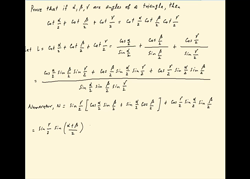 Prove that if α, β, γ are angles of a triangle, then
Cot α/2 + Cot β/2 + Cot γ/2 = Cot α/2 Cot β/2 Cot γ/2
Let L = Cot α/2 + Cot β/2 + Cot γ/2 = Cos α/2 / Sin α/2 + Cos β/2 / Sin β/2 + Cos γ/2 / Sin γ/2
= (Cos α/2 Sin β/2 Sin γ/2 + Cos β/2 Sin α/2 Sin γ/2 + Cos γ/2 Sin α/2 Sin β/2) / (Sin α/2 Sin β/2 Sin γ/2)
Numerator, N = Sin γ/2 [Cos α/2 Sin β/2 + Sin α/2 Cos β/2] + Cos γ/2 Sin α/2 Sin β/2
= Sin γ/2 Sin (α+β / 2)